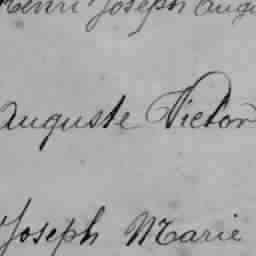 Henri Joseph Augu
Auguste Victor
Joseph Marie